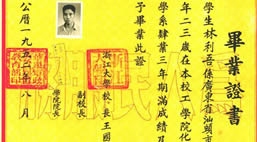 畢業證書
學生林利吾係廣東省汕頭市
年二三歲在本校工學院化
學系肄業三年期滿成績及
予畢業此證
浙江大學校長王國
副校長
學院院長
公曆一九五二年八月